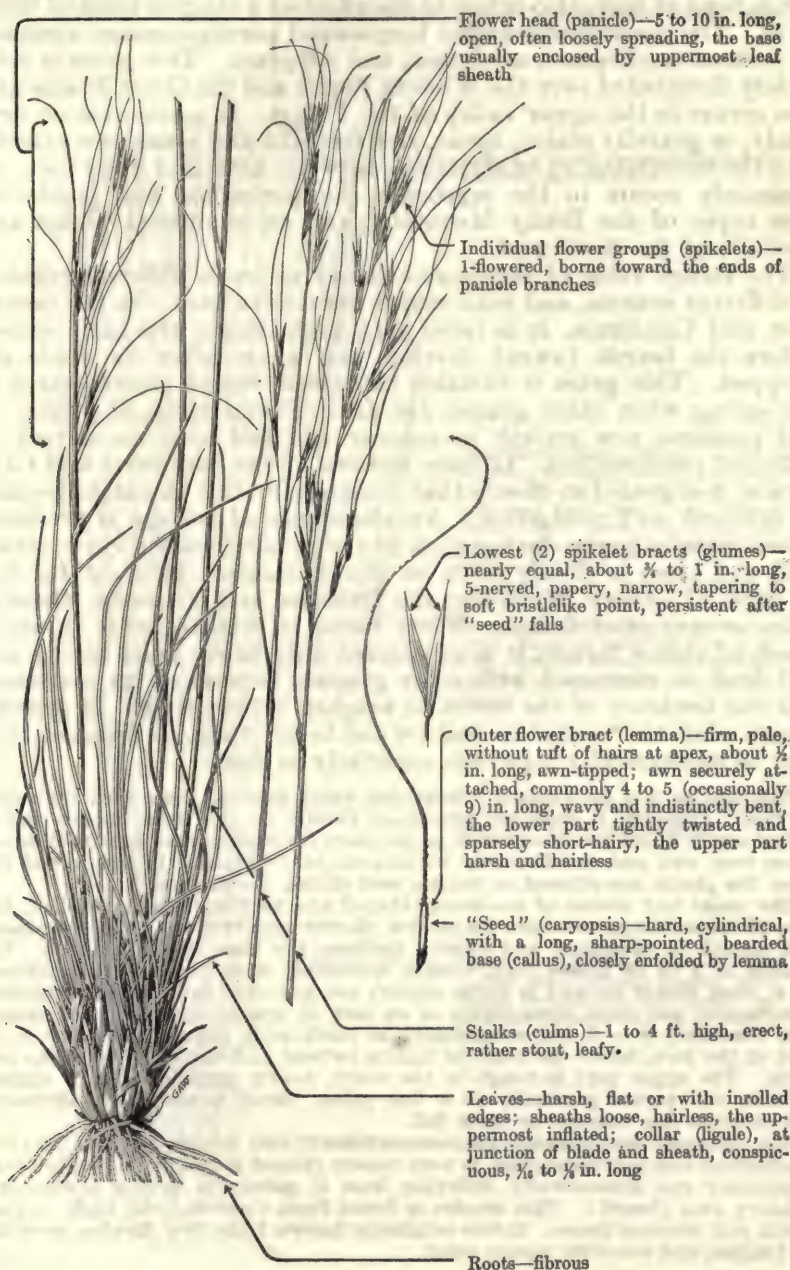 Flower head (panicle)—5 to 10 in. long,
open, often loosely spreading, the base
usually enclosed by uppermost leaf
sheath
Individual flower groups (spikelets)—
1-flowered, borne toward the ends of
panicle branches
Lowest (2) spikelet bracts (glumes)—
nearly equal, about ¾ to 1 in. long,
5-nerved, papery, narrow, tapering to
soft bristlelike point, persistent after
"seed" falls
Outer flower bract (lemma)—firm, pale,
without tuft of hairs at apex, about ½
in. long, awn-tipped; awn securely at-
tached, commonly 4 to 5 (occasionally
9) in. long, wavy and indistinctly bent,
the lower part tightly twisted and
sparsely short-hairy, the upper part
harsh and hairless
"Seed" (caryopsis)—hard, cylindrical,
with a long, sharp-pointed, bearded
base (callus), closely enfolded by lemma
Stalks (culms)—1 to 4 ft. high, erect,
rather stout, leafy.
Leaves—harsh, flat or with inrolled
edges; sheaths loose, hairless, the up-
permost inflated; collar (ligule), at
junction of blade and sheath, conspic-
uous, to in. long
GAW
Roots—fibrous